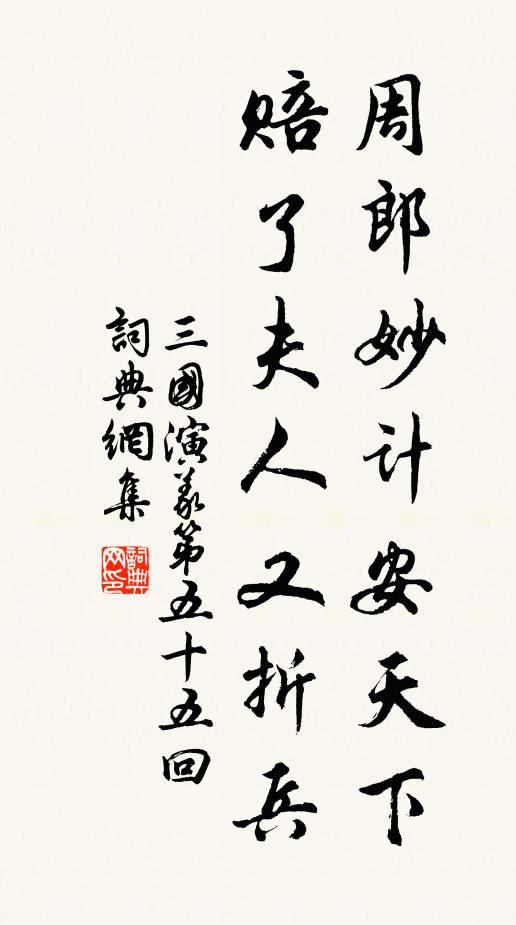 周郎妙计安天下
赔了夫人又折兵
三國演义第五十五回
詞典網集
詞典网印